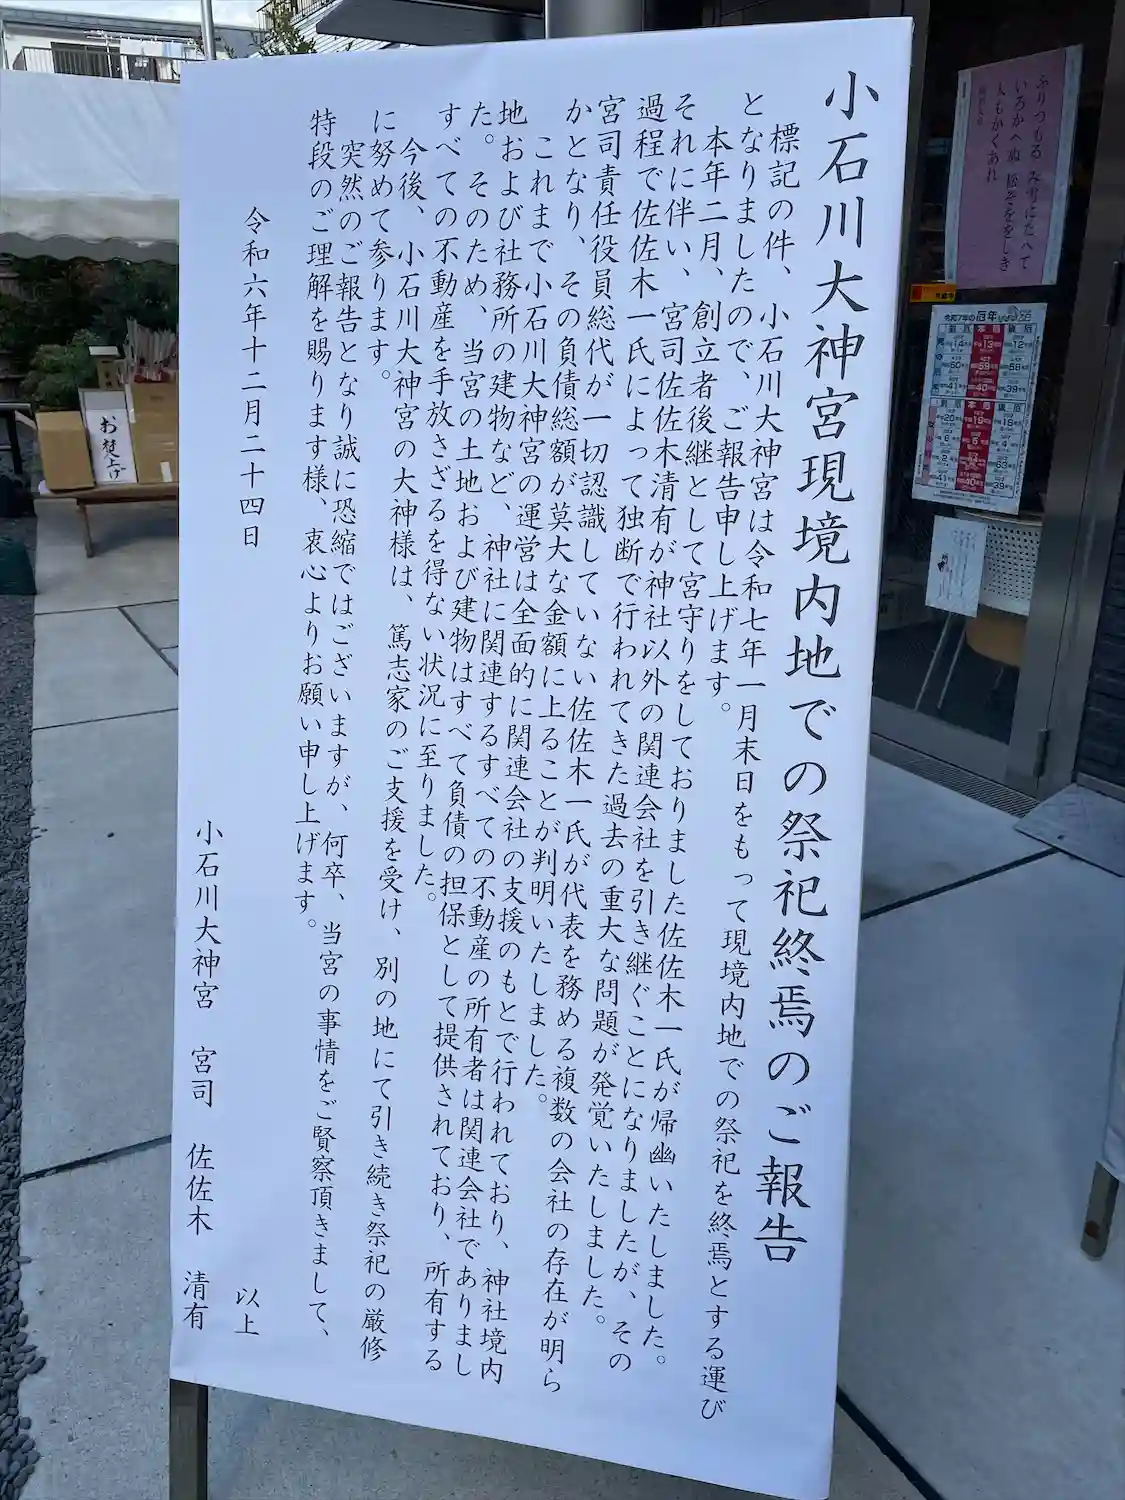 小石川大神宮現境内地での祭祀終焉のご報告
標記の件、小石川大神宮は令和七年一月末日をもって現境内地での祭祀を終焉とする運び
となりましたので、ご報告申し上げます。
本年二月、創立者後継として宮守りをしておりました佐佐木一氏が帰幽いたしました。
それに伴い、宮司佐佐木清有が神社以外の関連会社を引き継ぐことになりましたが、その
過程で佐佐木一氏によって独断で行われてきた過去の重大な問題が発覚いたしました。
宮司責任役員総代が一切認識していない佐佐木一氏が代表を務める複数の会社の存在が明ら
かとなり、その負債総額が莫大な金額に上ることが判明いたしました。
これまで小石川大神宮の運営は全面的に関連会社の支援のもとで行われており、神社境内
地および社務所の建物など、神社に関連するすべての不動産の所有者は関連会社でありまし
た。そのため、当宮の土地および建物はすべて負債の担保として提供されており、所有する
すべての不動産を手放さざるを得ない状況に至りました。
今後、小石川大神宮の大神様は、篤志家のご支援を受け、別の地にて引き続き祭祀の厳修
に努めて参ります。
突然のご報告となり誠に恐縮ではございますが、何卒、当宮の事情をご賢察頂きまして、
特段のご理解を賜ります様、衷心よりお願い申し上げます。
以上
令和六年十二月二十四日
小石川大神宮 宮司 佐佐木 清有
ふりつもる み雪にたへて
いろかへぬ 松ぞををしき
人もかくあれ
令和7年の厄年
お焚上げ